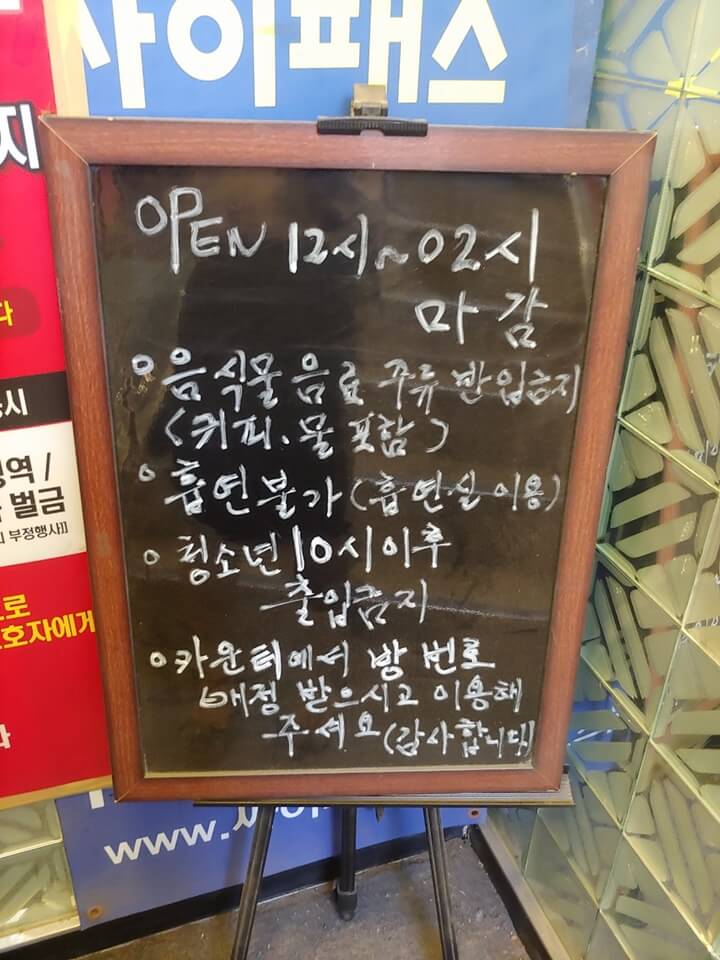 싸이패스
지
다
시
징역 /
벌금
부정행사]]
으로
호자에게
OPEN 12시~02시
마감
○ 음식물 음료 주류 반입금지
(커피. 물 포함)
○ 흡연불가 (흡연실 이용)
○ 청소년 10시이후
출입금지
○ 카운터에서 방 번호
배정 받으시고 이용해
주세요 (감사합니다)
www.싸이